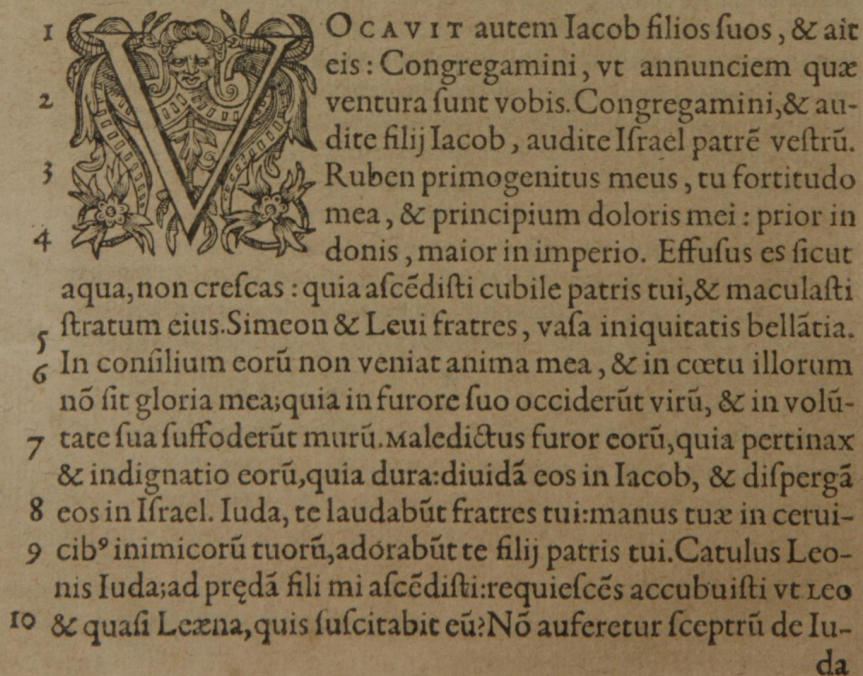 1 VOCAVIT autem Iacob filios ſuos, & ait
eis: Congregamini, vt annunciem quæ
2 ventura ſunt vobis. Congregamini, & au-
dite filij Iacob, audite Iſrael patrẽ veſtrũ.
3 Ruben primogenitus meus, tu fortitudo
mea, & principium doloris mei: prior in
4 donis, maior in imperio. Effuſus es ſicut
aqua, non creſcas: quia aſcẽdiſti cubile patris tui, & maculaſti
5 ſtratum eius. Simeon & Leui fratres, vaſa iniquitatis bellãtia.
6 In conſilium eorũ non veniat anima mea, & in cœtu illorum
nõ ſit gloria mea; quia in furore ſuo occiderũt virũ, & in volũ-
7 tate ſua ſuffoderũt murũ. Maledictus furor eorũ, quia pertinax
& indignatio eorũ, quia dura: diuidã eos in Iacob, & diſpergã
8 eos in Iſrael. Iuda, te laudabũt fratres tui: manus tuæ in cerui-
9 cibꝰ inimicorũ tuorũ, adorabũt te filij patris tui. Catulus Leo-
nis Iuda; ad prędã fili mi aſcẽdiſti: requieſcẽs accubuiſti vt Leo
10 & quaſi Leæna, quis ſuſcitabit eũ? Nõ auferetur ſceptrũ de Iu-
da